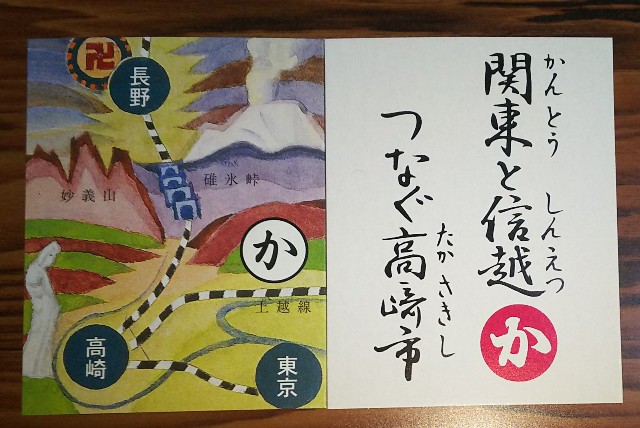 卍
長野
碓氷峠
妙義山
か
上越線
高崎
東京
かんとう しんえつ
関東と信越
つなぐ高崎市
たかさきし
か